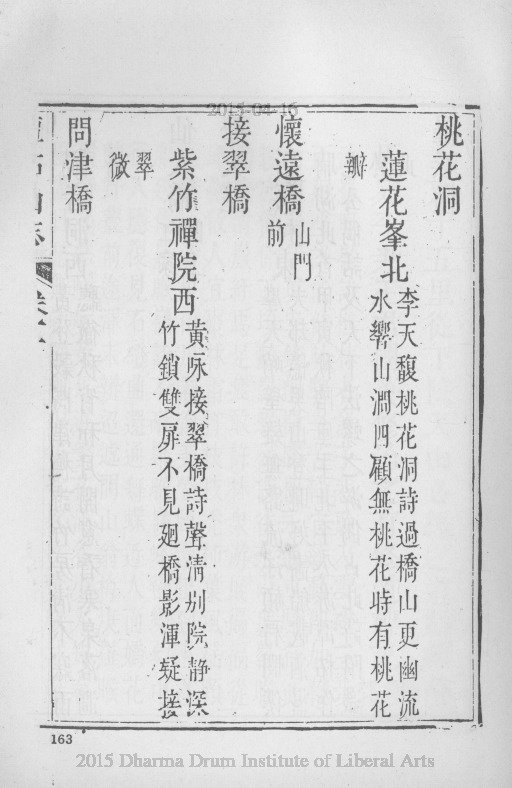 2015-04-16
桃花洞
蓮花峯北
李天馥桃花洞詩過橋山更幽流
水響山澗四顧無桃花時有桃花
瓣
懷遠橋
山門
前
接翠橋
紫竹禪院西
黃䟆接翠橋詩聲清別院静深
竹鎖雙扉不見廻橋影渾疑接
翠
微
問津橋
163
2015 Dharma Drum Institute of Liberal Arts